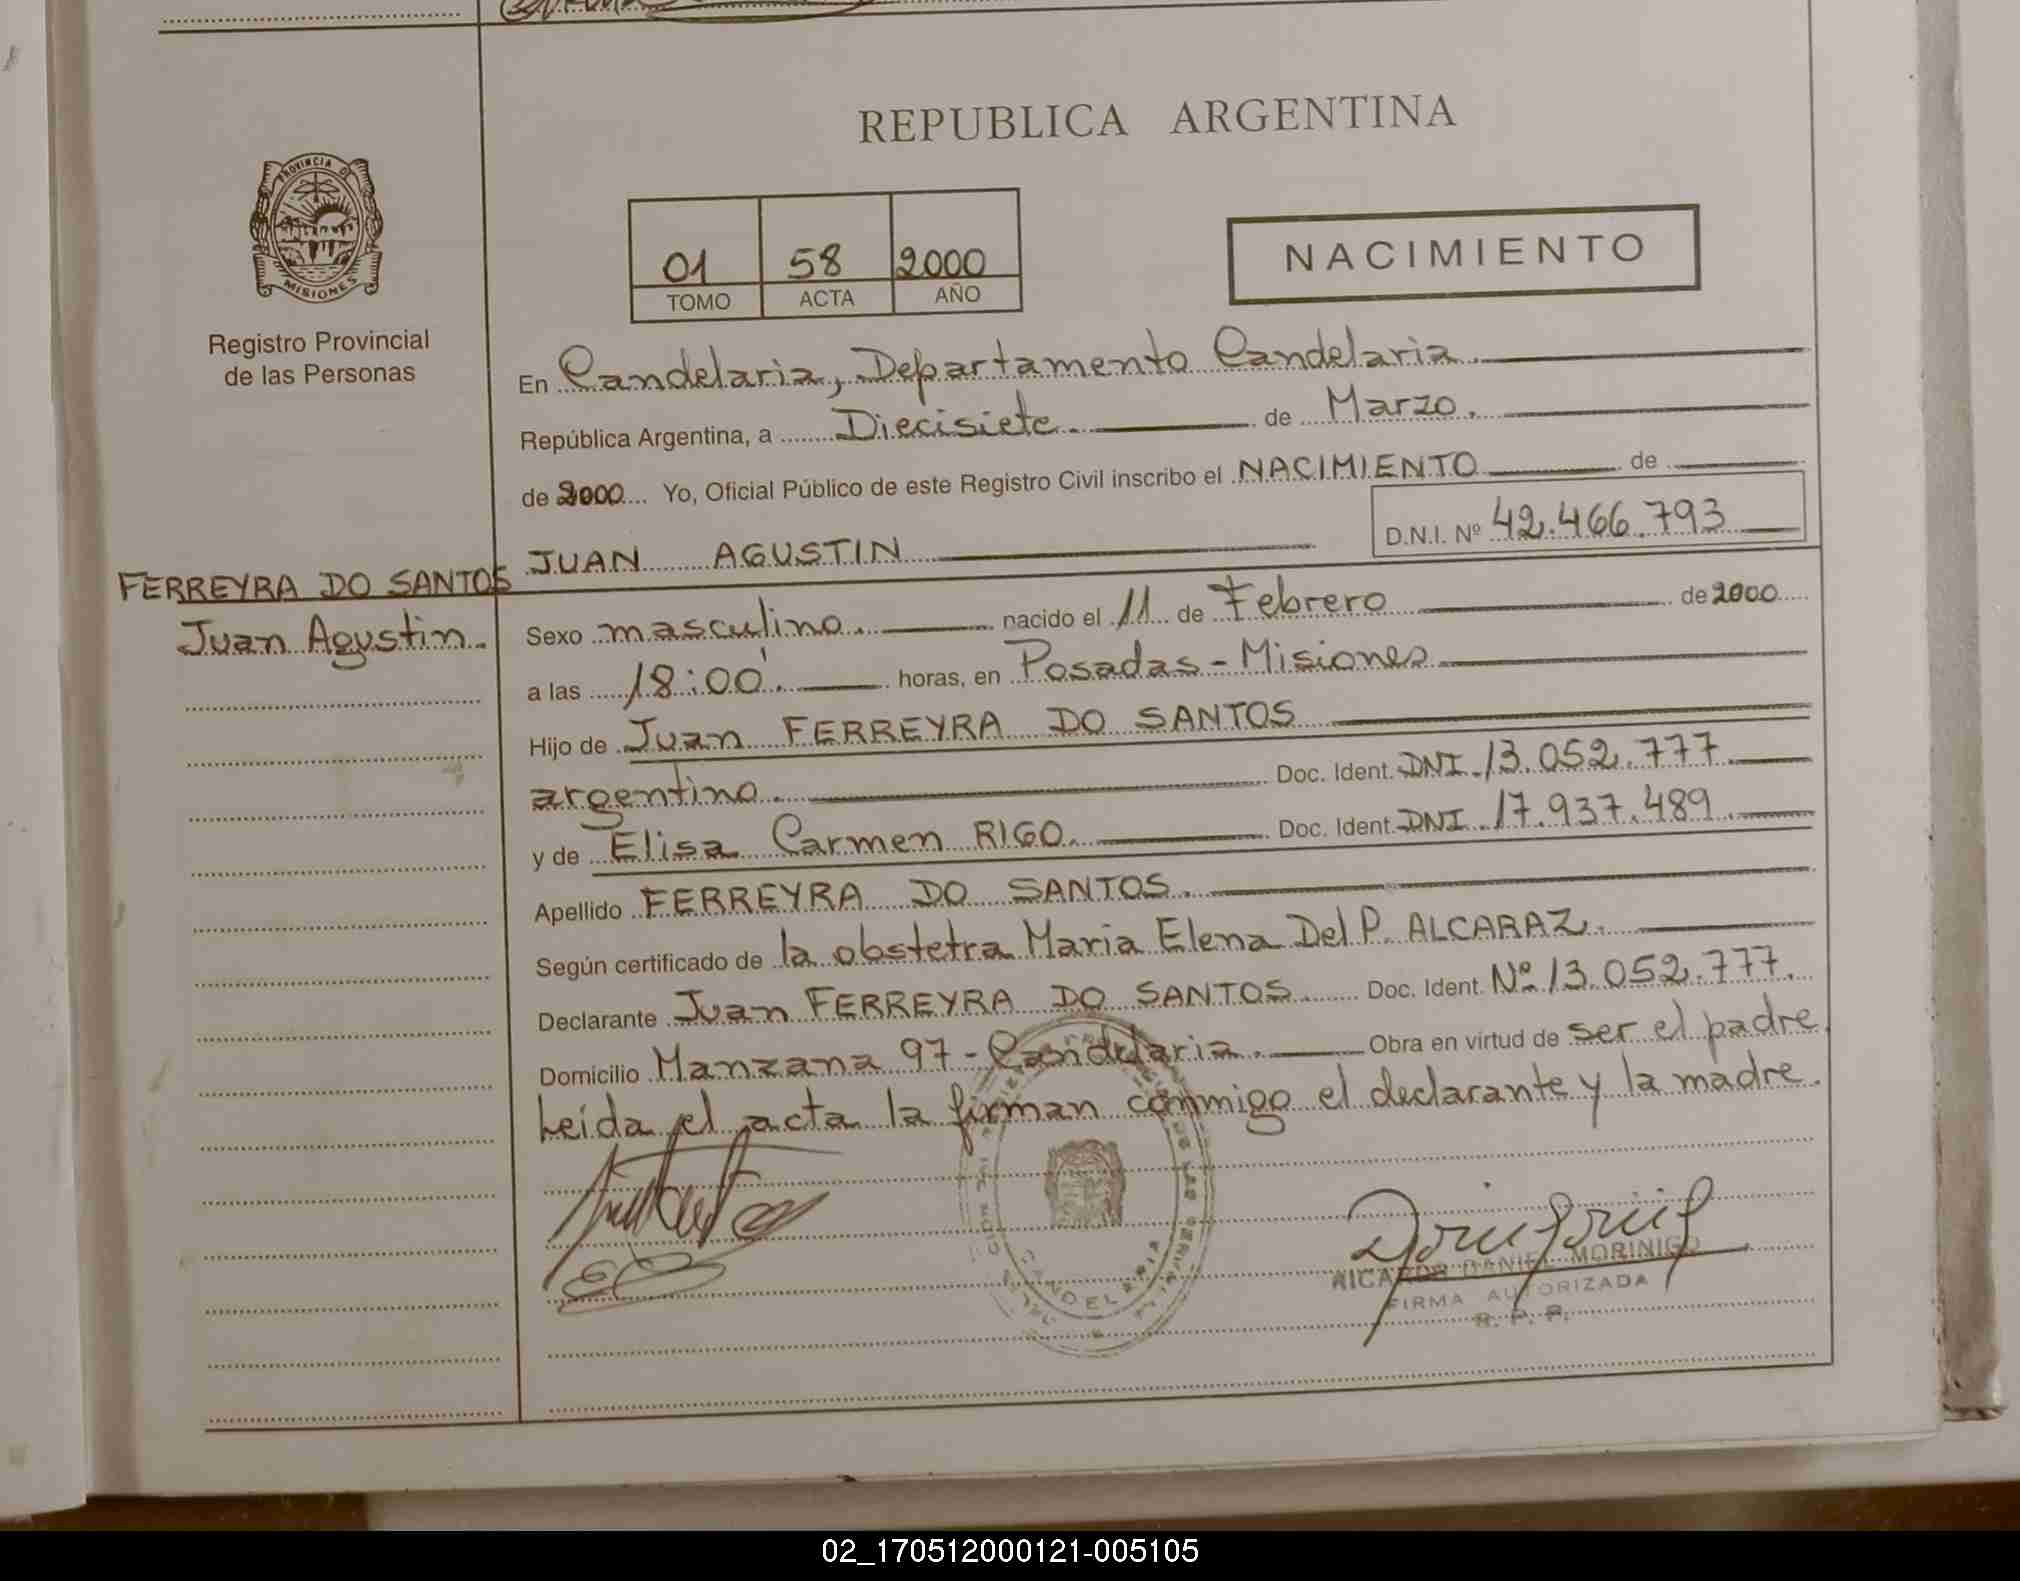 REPUBLICA ARGENTINA
PROVINCIA DE
MISIONES
Registro Provincial
de las Personas
01 58 2000
TOMO ACTA AÑO
NACIMIENTO
En Candelaria, Departamento Candelaria.
República Argentina, a Diecisiete. de Marzo.
de 2000 Yo, Oficial Público de este Registro Civil inscribo el NACIMIENTO de
D.N.I. Nº 42.466.793
JUAN AGUSTIN
FERREYRA DO SANTOS
Juan Agustin.
Sexo masculino. nacido el 11 de Febrero de 2000
a las 18:00'. horas, en Posadas - Misiones
Hijo de Juan FERREYRA DO SANTOS
argentino. Doc. Ident. DNI. 13.052.777
y de Elisa Carmen RIGO. Doc. Ident. DNI. 17.937.489.
Apellido FERREYRA DO SANTOS.
Según certificado de la obstetra Maria Elena Del P. ALCARAZ.
Declarante Juan FERREYRA DO SANTOS Doc. Ident. Nº 13.052.777.
Domicilio Manzana 97 - Candelaria. Obra en virtud de ser el padre
Leída el acta la firman conmigo el declarante y la madre.
CANDELARIA
RICARDO DANIEL MORINIGO
FIRMA AUTORIZADA
R. P. P.
02_170512000121-005105